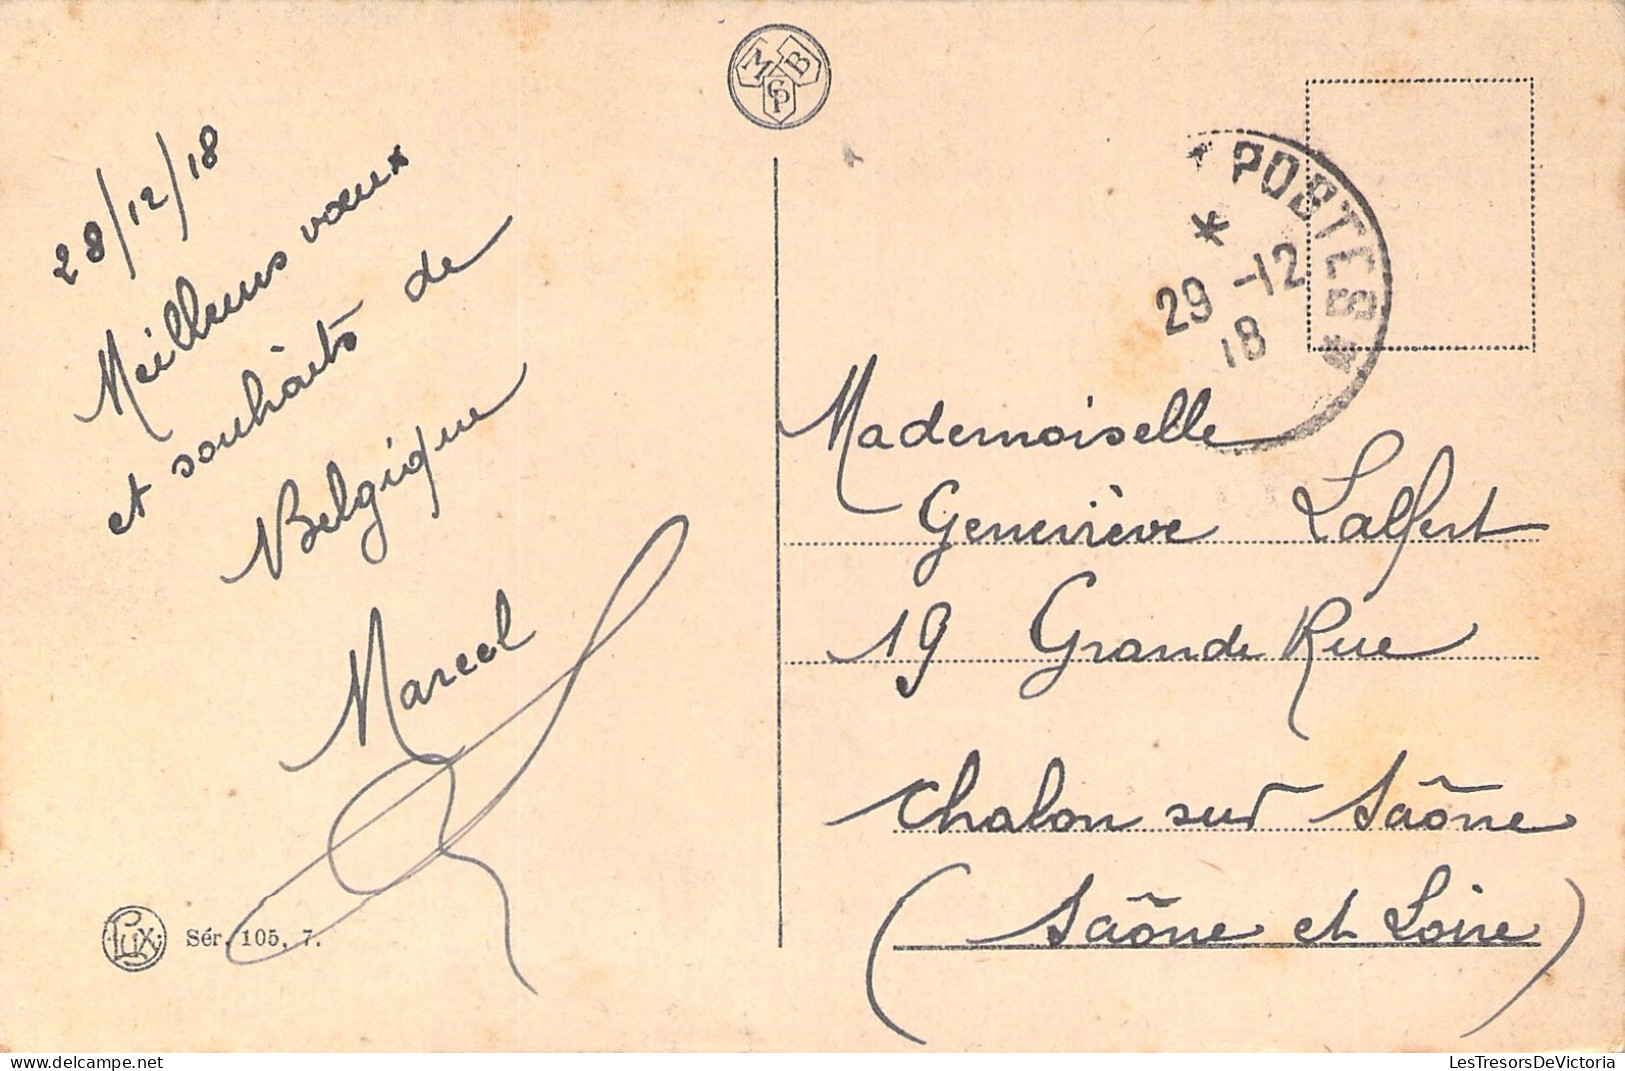 M B
C P
28/12/18
Meilleurs vœux
et souhaits de
Belgique
Marcel
Lux
Sér. 105, 7.
* POSTES *
*
29 -12
18
Mademoiselle
Geneviève Lalfert
19 Grande Rue
Chalon sur Saône
(Saône et Loire)
LesTresorsDeVictoria